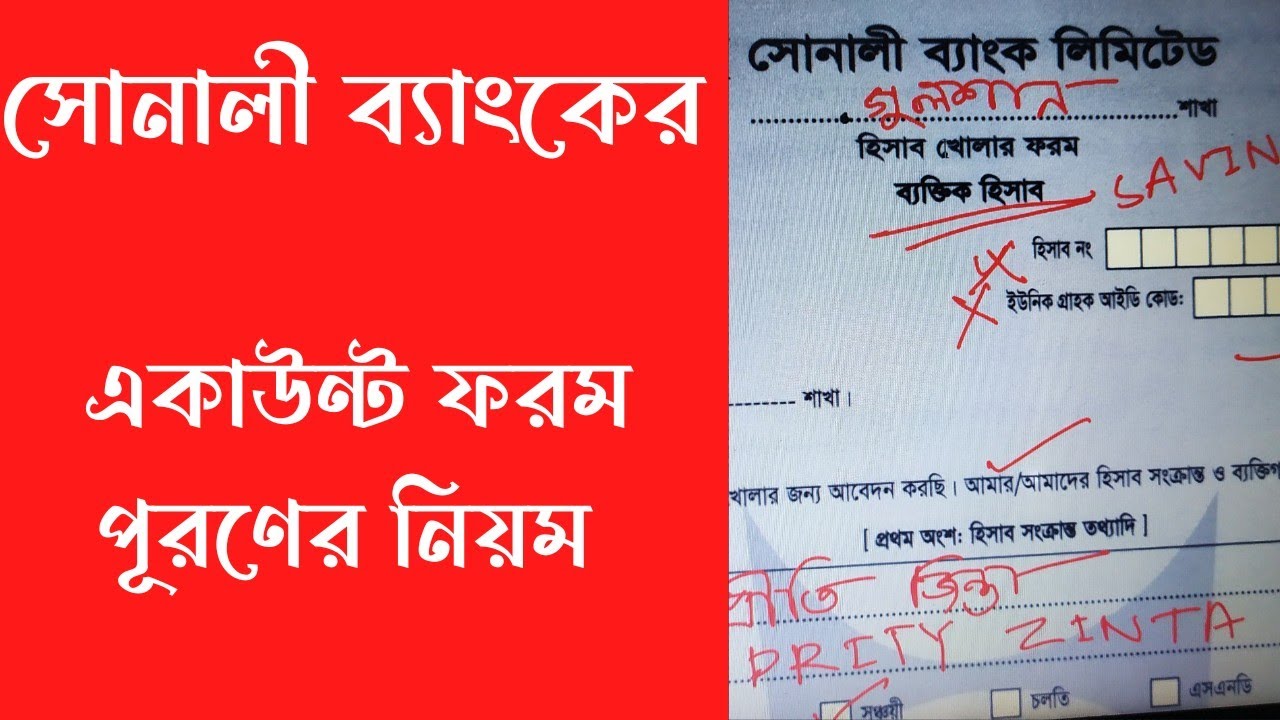 সোনালী ব্যাংকের
একাউন্ট ফরম
পূরণের নিয়ম
সোনালী ব্যাংক লিমিটেড
গুলশান শাখা
হিসাব খোলার ফরম
ব্যক্তিক হিসাব
SAVIN
হিসাব নং
ইউনিক গ্রাহক আইডি কোড:
শাখা।
খোলার জন্য আবেদন করছি। আমার/আমাদের হিসাব সংক্রান্ত ও ব্যক্তিগ
[ প্রথম অংশ: হিসাব সংক্রান্ত তথ্যাদি ]
প্রীতি জিন্তা
PRITY ZINTA
সঞ্চয়ী চলতি এসএনডি